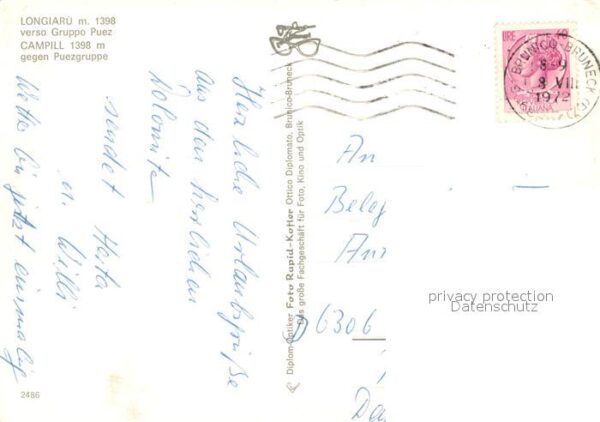 LONGIARÜ m. 1398
verso Gruppo Puez
CAMPILL 1398 m
gegen Puezgruppe
Herzliche Urlaubsgrüße
aus den herrlichen
Dolomiten
sendet Herta
u. Willi
Wetter bis jetzt einmalig
2486
Diplom-Optiker Foto Rapid-Kofler Ottico Diplomato, Brunico-Bruneck
Das große Fachgeschäft für Foto, Kino und Optik
LIRE
BRUNICO-BRUNECK
8-9
8 VIII
1972
An
D 6306
privacy protection
Datenschutz